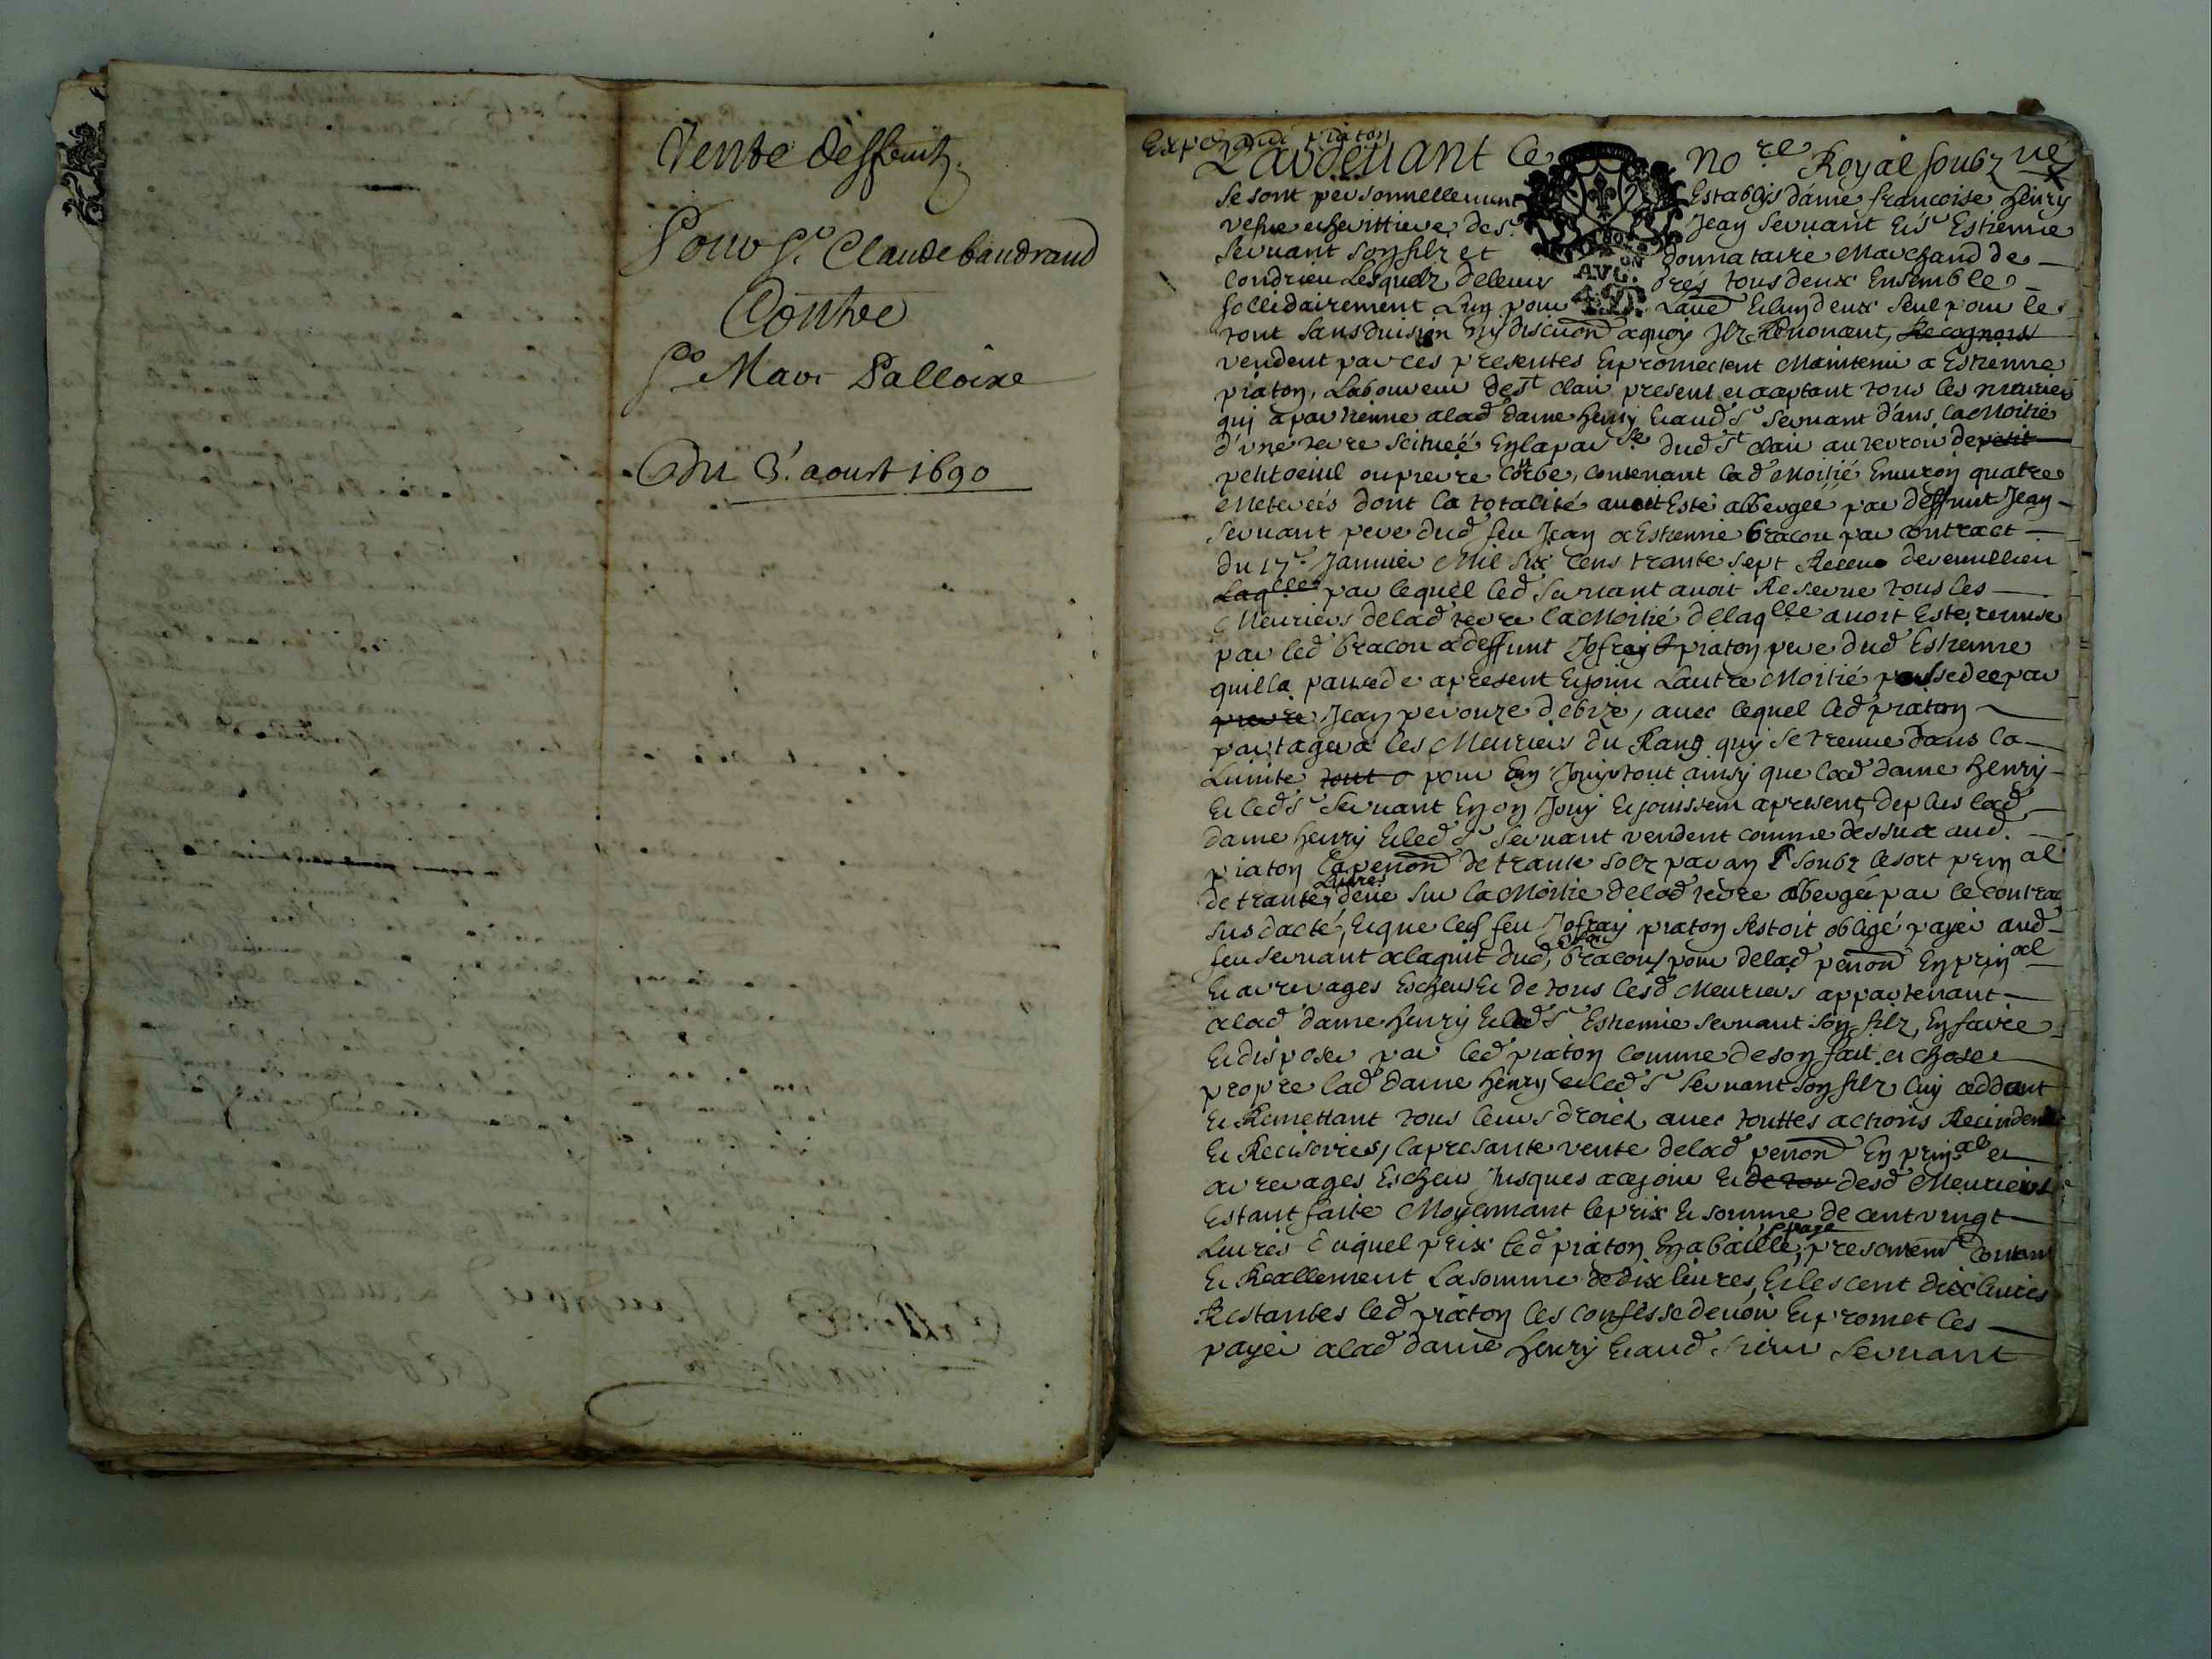 Vente deffruitz
Pour Sr. Claude baudrand
Contre
Sr Marc Palloixe
Du 3e. aoust 1690
Expedié aud piaton
Pardevant le nore Royal soubz né
se sont personnellement Establis dame francoise henry
vefve et heritiere de sr. Jean Servant et sr Estienne
Servant son filz et donnataire Marchand de
Condrieu Lesquelz de leurs grés tous deux Ensemble
sollidairement Lun pour Laud et lun deux seul pour le
tout sans division ny discuon a quoy Ilz Renoncent, Recognois
vendent par ces presentes et promectent Maintenir a Estienne
piaton, Laboureur de st clair present et acceptant tous les muriers
quy apartienne a lad dame henry et aud sr Servant dans la Moitié
d'une terre scituée En la parsse dud st clair au terroir de petit
petit oeuil ou pierre Corbe, contenant lad Moitié Environ quatre
Meterées dont la totalité auoit Esté albergée par deffunt Jean
Servant pere dud feu Jean a Estienne bracou par contract
du 17e Januier Mil six cens trante sept Receu
Laqlle par lequel led Seruant auoit Reserue tous les
Meuriers de lad terre la Moitié de laqlle auoit Esté remise
par led bracou a deffunt Jofrey piaton pere dud Estienne
quil la passede a present Et joint Lautre Moitié possedee par
pierre Jean perouze debze, auec lequel led piaton
partagera les Meuriers du Rang quy se treuue dans la
Limite tout pour En Jouir tout ainsy que lad dame henry
Et led sr Servant En on Jouy Et jouissent a present, de plus lad
dame henry Et led sr Servant vendent comme dessus aud
piaton la penon de trante solz par an soubz le sort prinal
de trante Livres deüe sur la Moitié de lad terre albergée par le contra
sus dacté, Et que led feu Jofray piaton sestoit obligé payer aud
feu Servant a laquit dud bracou, pour de lad penon En prinal
Et arrerages Escheus Et de tous lesd Meuriers appartenant
a lad dame henry Et aud sr Estienne Servant son filz, En faire
Et disposer par led piaton comme de son fait et chose
propre lad dame henry et led sr Servant son filz luy ceddant
Et Remettant tous leurs droict auec touttes actions Recindentes
Et Recisoires, la presante vente de lad penon En prinal et
arrerages Escheus Jusques a ce jour Et de tou desd Meuriers
Estant faite Moyennant le prix Et somme de cent vingt
Livres duquel prix led piaton En a baillé, payé presentemt contant
Et Reallement La somme de dix livres, Et les cent dix livres
Restantes led piaton les confesse devoir Et promet les
payer a lad dame henry Et aud sieur Servant